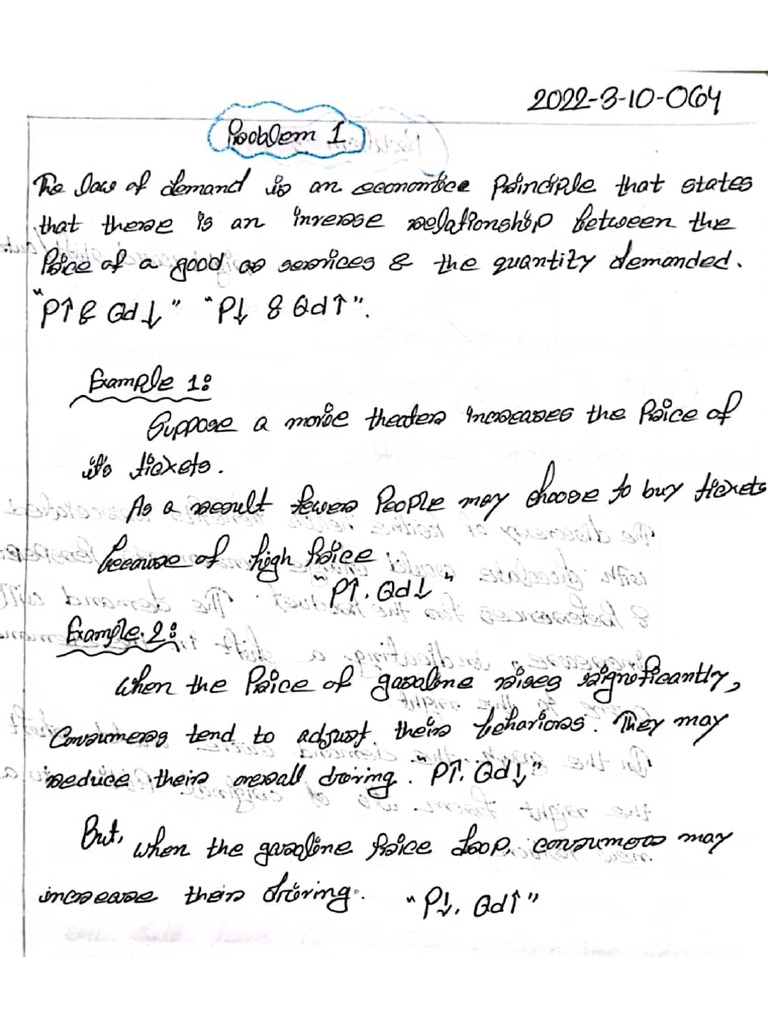 2022-3-10-064
Problem 1
The law of demand is an economice Principle that states
that there is an inverse relationship between the
Price of a good or services & the quantity demanded.
"P↑ & Qd↓" "P↓ & Qd↑".
Example 1:
Suppose a movie theater increases the Price of
it's tickets.
As a result fewer People may choose to buy tickets
because of high Price
"P↑. Qd↓"
Example 2:
When the Price of gasoline rises significantly,
Consumers tend to adjust their behaviors. They may
reduce their overall driving. "P↑. Qd↓"
But, when the gasoline Price drop, consumers may
increase their driving. "P↓. Qd↑"